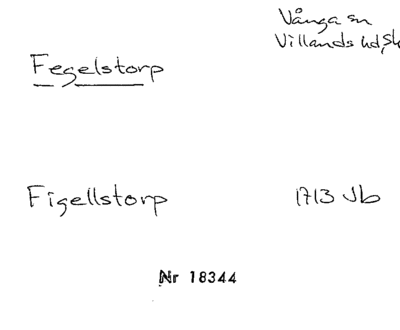 Vånga sn
Villands hd, Sk
Fegelstorp
Figellstorp 1713 Jb
Nr 18344